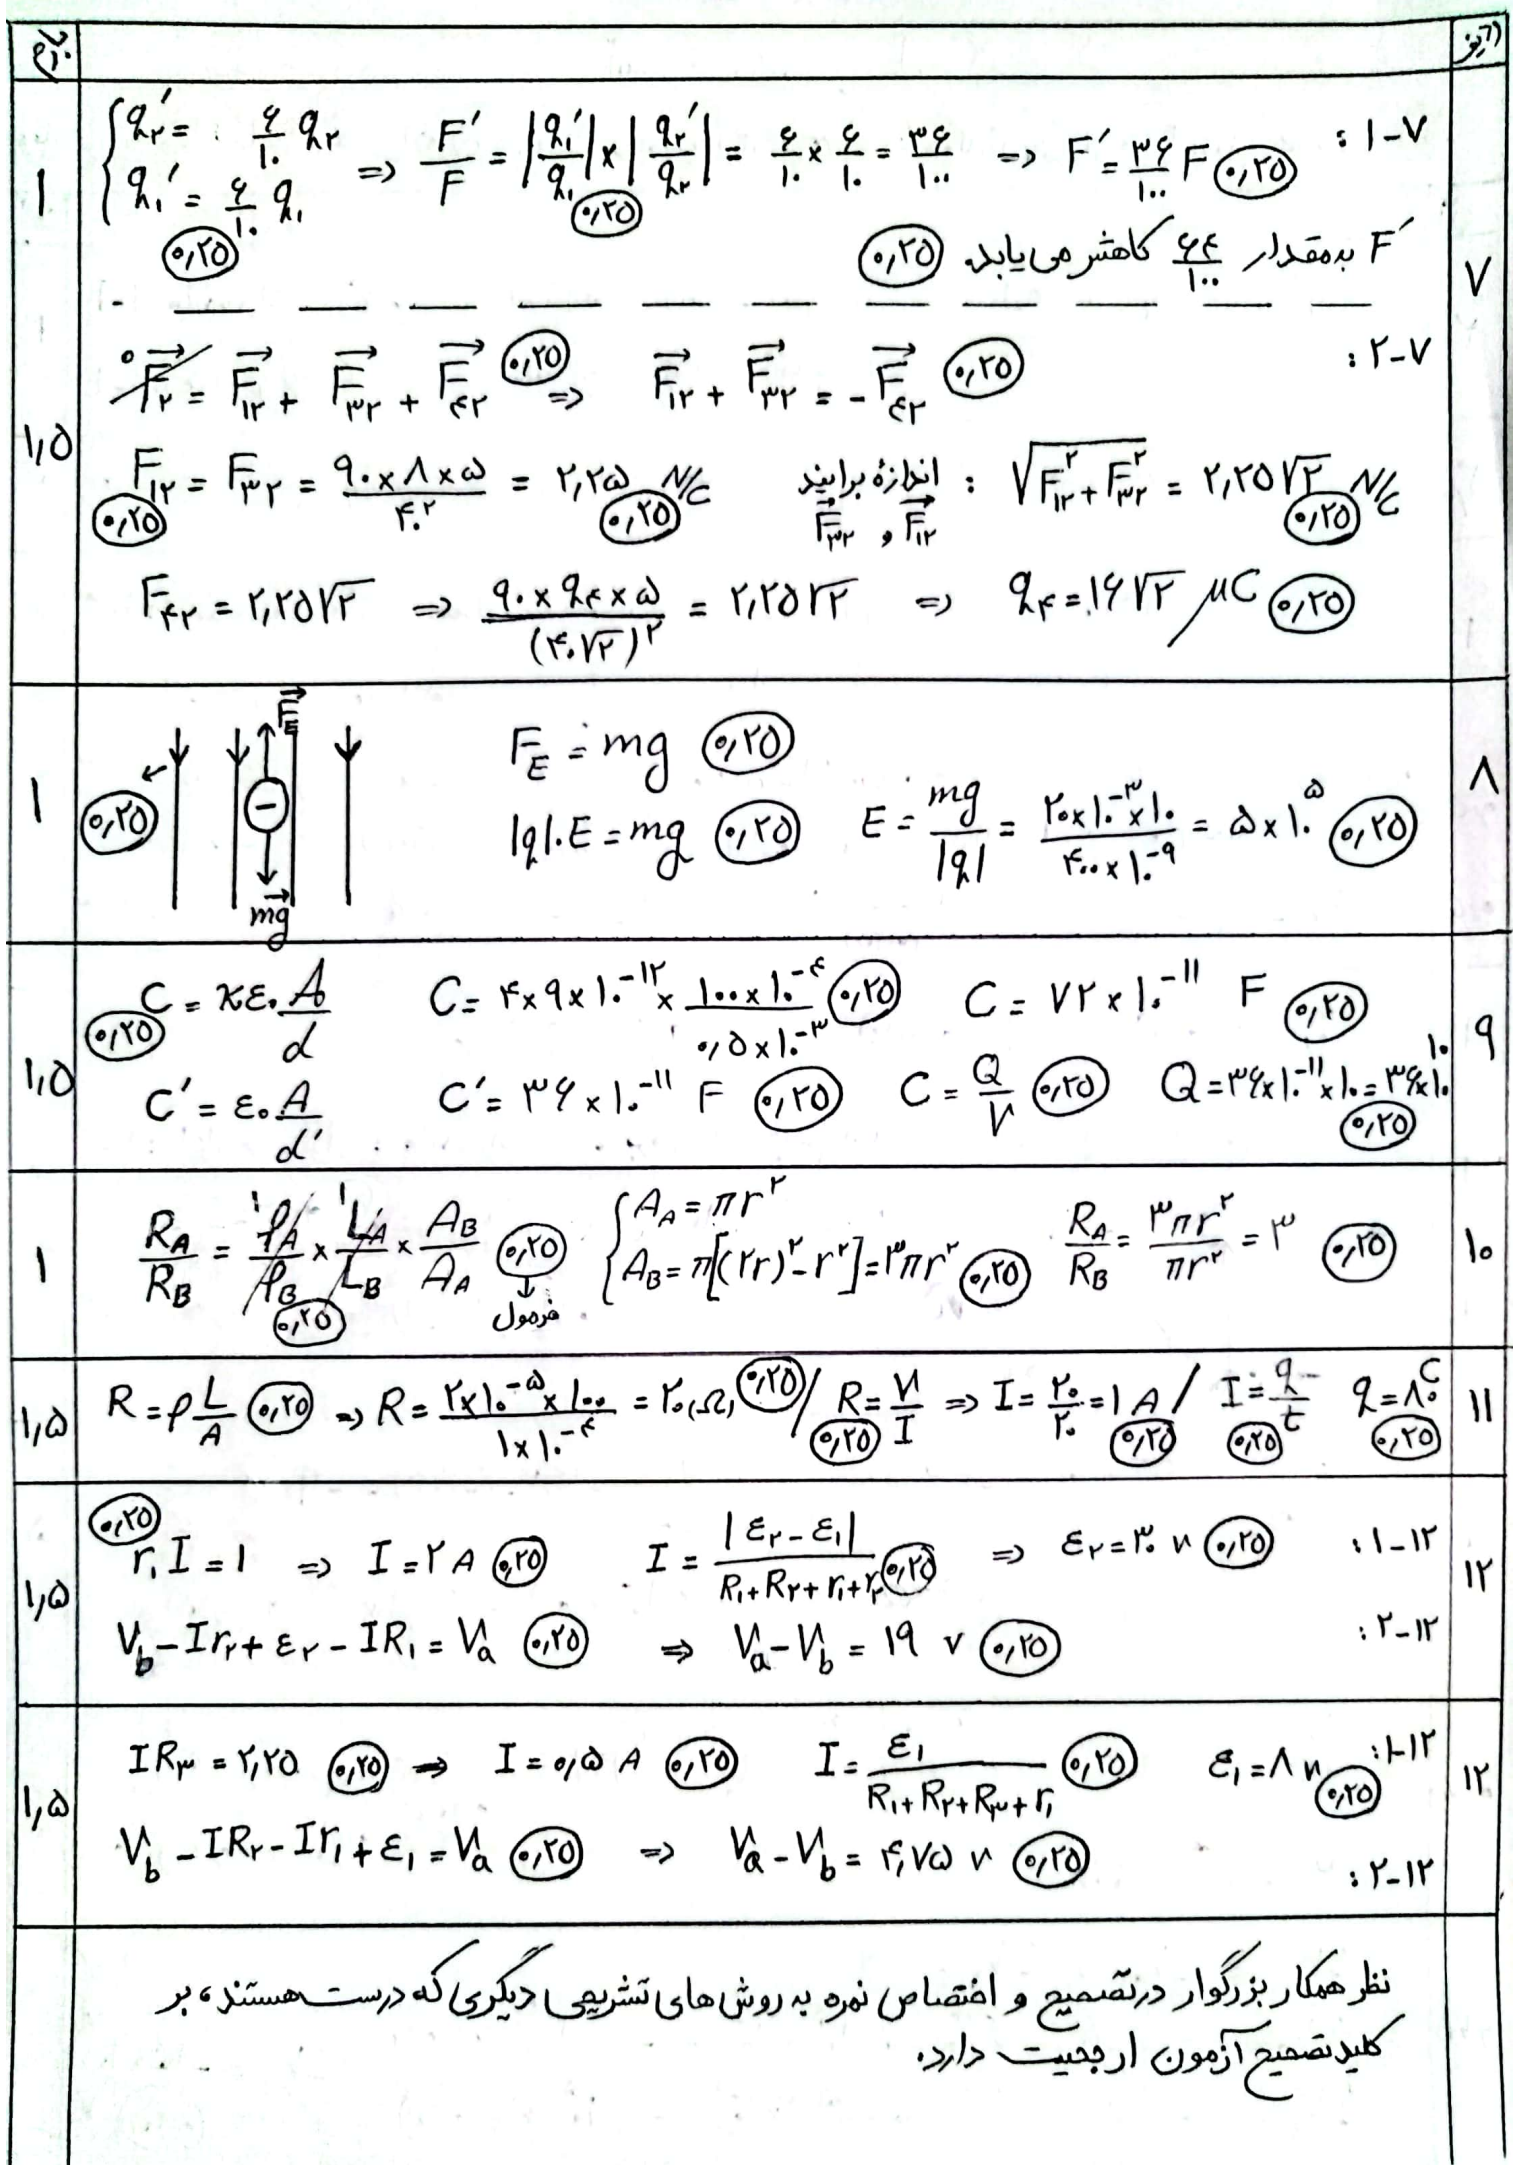 ردیف بارم
۷-۱: { q₂′ = ۶/۱۰ q₂ , q₁′ = ۶/۱۰ q₁ (۰٫۲۵) => F′/F = |q₁′/q₁| × |q₂′/q₂| (۰٫۲۵) = ۶/۱۰ × ۶/۱۰ = ۳۶/۱۰۰ => F′ = ۳۶/۱۰۰ F (۰٫۲۵) ۱
۷ F′ به مقدار ۶۴/۱۰۰ کاهش می یابد. (۰٫۲۵)
۷-۲:
F⃗₂ = F⃗₁₂ + F⃗₃₂ + F⃗₄₂ (۰٫۲۵) => F⃗₁₂ + F⃗₃₂ = - F⃗₄₂ (۰٫۲۵) ۰
F₁₂ = F₃₂ = ۹۰×۸×۵ / ۴۰^۲ (۰٫۲۵) = ۲٫۲۵ N/C (۰٫۲۵) اندازهٔ برایند F⃗₁₂ و F⃗₃₂ : √(F₁₂^۲ + F₃₂^۲) = ۲٫۲۵√۲ N/C (۰٫۲۵) ۱٫۵
F₄₂ = ۲٫۲۵√۲ => ۹۰×q₄×۵ / (۴۰√۲)^۲ = ۲٫۲۵√۲ => q₄ = ۱۶√۲ μC (۰٫۲۵)
F⃗_E
F_E = mg (۰٫۲۵)
۸ (۰٫۲۵) − |q|.E = mg (۰٫۲۵) E = mg/|q| = ۲۰×۱۰^-۳×۱۰ / ۴۰۰×۱۰^-۹ = ۵×۱۰^۵ (۰٫۲۵) ۱
mg⃗
C = κε₀ A/d (۰٫۲۵) C = ۴×۹×۱۰^-۱۲ × ۱۰۰×۱۰^-۴ / ۰٫۵×۱۰^-۳ (۰٫۲۵) C = ۷۲×۱۰^-۱۱ F (۰٫۲۵) ۹
C′ = ε₀ A/d′ C′ = ۳۶×۱۰^-۱۱ F (۰٫۲۵) C = Q/V (۰٫۲۵) Q = ۳۶×۱۰^-۱۱×۱۰ = ۳۶×۱۰^۱۰ (۰٫۲۵) ۱٫۵
R_A/R_B = ρ_A/ρ_B × L_A/L_B × A_B/A_A (۰٫۲۵) فرمول (۰٫۲۵) { A_A = πr^۲ , A_B = π[(۲r)^۲ - r^۲] = ۳πr^۲ (۰٫۲۵) R_A/R_B = ۳πr^۲/πr^۲ = ۳ (۰٫۲۵) ۱۰ ۱
R = ρ L/A (۰٫۲۵) => R = ۲×۱۰^-۵×۱۰۰ / ۱×۱۰^-۴ = ۲۰(Ω) (۰٫۲۵) / R = V/I (۰٫۲۵) => I = ۲۰/۲۰ = ۱ A (۰٫۲۵) / I = q/t (۰٫۲۵) q = ۸۰ C (۰٫۲۵) ۱۱ ۱٫۵
۱۲-۱: r₁I = ۱ (۰٫۲۵) => I = ۲ A (۰٫۲۵) I = |ε₂ - ε₁| / R₁+R₂+r₁+r₂ (۰٫۲۵) => ε₂ = ۳۰ v (۰٫۲۵) ۱۲ ۱٫۵
۱۲-۲: V_b - Ir₂ + ε₂ - IR₁ = V_a (۰٫۲۵) => V_a - V_b = ۱۹ v (۰٫۲۵)
۱۲-۱: IR₃ = ۲٫۲۵ (۰٫۲۵) => I = ۰٫۵ A (۰٫۲۵) I = ε₁ / R₁+R₂+R₃+r₁ (۰٫۲۵) ε₁ = ۸ v (۰٫۲۵) ۱۲ ۱٫۵
۱۲-۲: V_b - IR₂ - Ir₁ + ε₁ = V_a (۰٫۲۵) => V_a - V_b = ۴٫۷۵ v (۰٫۲۵)
نظر همکار بزرگوار در تصحیح و اختصاص نمره به روش های تشریحی دیگری که درست هستند، بر
کلید تصحیح آزمون ارجحیت دارد.